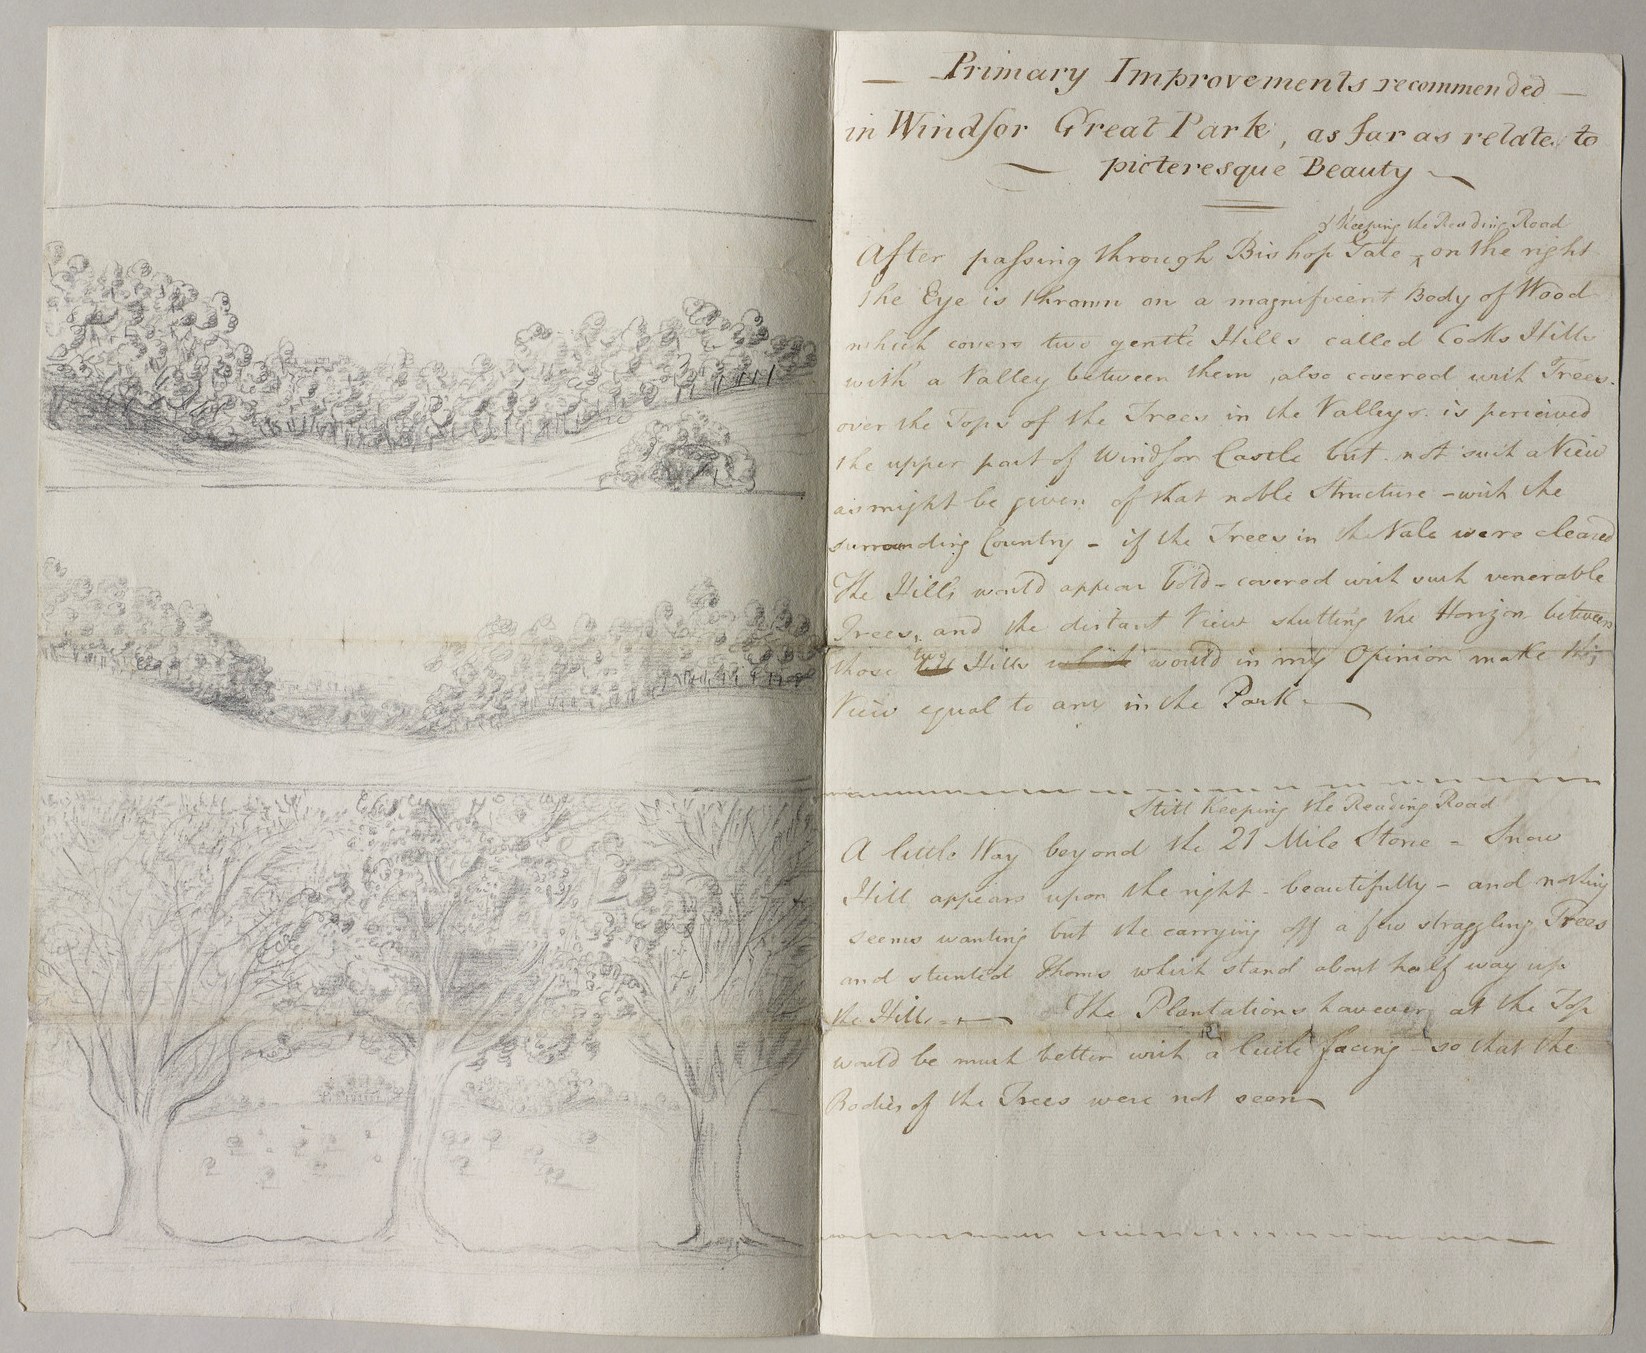 — Primary Improvements recommended —
in Windsor Great Park, as far as relates to
picteresque Beauty
& Keeping the Reading Road
After passing through Bishop Gate ^ on the right
the Eye is thrown on a magnificent Body of Wood
which covers two gentle Hills called Cooks Hills
with a Valley between them, also covered with Trees.
over the Tops of the Trees in the Valleys is perceived
the upper part of Windsor Castle but not such a View
as might be given of that noble Structure - with the
surrounding Country - if the Trees in the Vale were cleared
The Hills would appear bold - covered with such venerable
Trees, and the distant View shutting the Horizon between
those two Hills which would in my Opinion make this
View equal to any in the Park.
Still keeping the Reading Road
A little Way beyond the 21 Mile Stone - Snow
Hill appears upon the right - beautifully - and nothing
seems wanting but the carrying off a few straggling Trees
and stunted Thorns which stand about half way up
the Hill. — The Plantations however at the Top
would be much better with a little facing - so that the
Bodies of the Trees were not seen